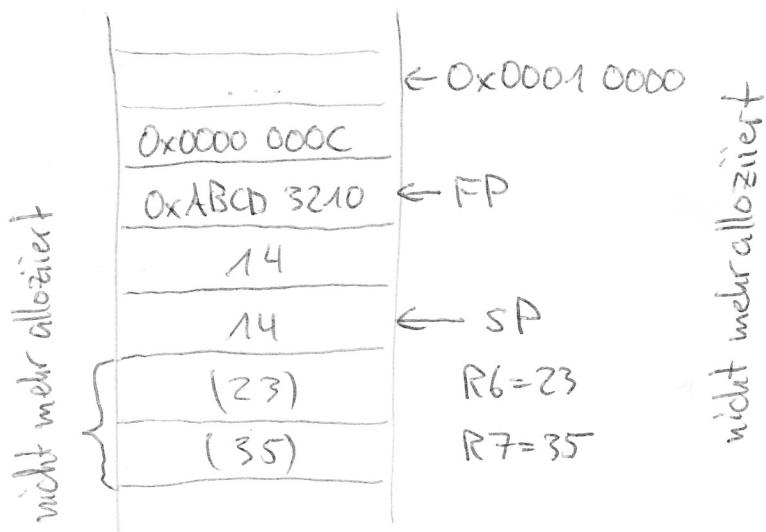 ...
← 0x0001 0000
0x0000 000C
0xABCD 3210 ← FP
14
14 ← SP
(23) R6=23
(35) R7=35
nicht mehr alloziiert
nicht mehr alloziiert